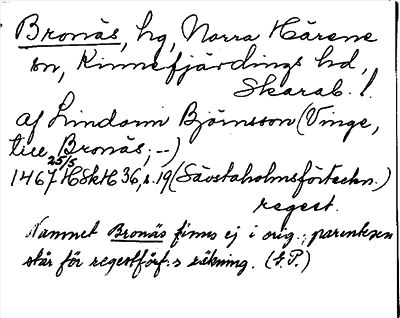 Bronäs, hg, Norra Härene
sn, Kinnefjärdings hd,
Skarab. l.
af Lindorm Björnsson (Vinge,
till Bronäs; --)
1467 25/5 HSkH 36, s. 19 (Sävstaholmsförteckn.)
regest.
Namnet Bronäs finns ej i orig.; parentesen
står för regestförf:s räkning. (G.P.)